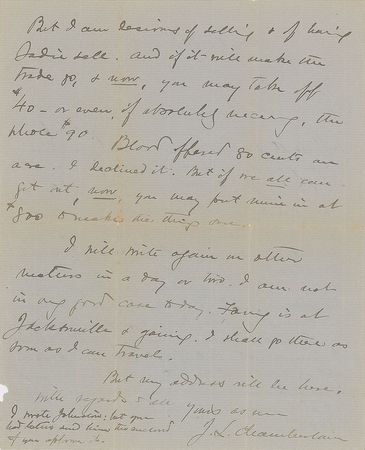 But I am desirous of selling & of having
Sadie sell. And if it will make the
trade go, & now, you may take off
$40 - or even, if absolutely necessary, the
whole $90.
Blood offered 80 cents an
acre. I declined it. But if we all can
get out, now, you may put mine in at
$800 to make the thing
I will write again on other
matters in a day or two. I am not
in very good case today. Fanny is at
Jacksonville & gaining. I shall go there as
soon as I can travel.
But my address will be here.
With regards to all yours as ever
J. L. Chamberlain
I wrote Johnston: but you
had better send him the
if you approve it.